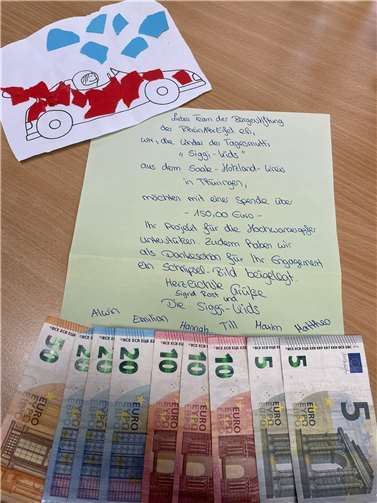 Liebes Team der Bürgerstiftung
der RheinAhrEifel eG,
wir, die Kinder der Tagesmutti
"Siggi-Kids"
aus dem Saale-Holzland-Kreis
in Thüringen,
möchten mit einer Spende über
- 150,00 Euro -
Ihr Projekt für die Hochwasseropfer
unterstützen. Zudem haben wir
als Dankeschön für Ihr Engagement
ein Schnipsel-Bild beigelegt.
Herzlichste Grüße
Sigrid Rost und
Die Siggi-Kids
Alwin Emilian Hannah Till Maxim Matthea
50 20 20 20 10 10 10 5 5
EURO EURO EURO EURO EURO EURO EURO EURO
5